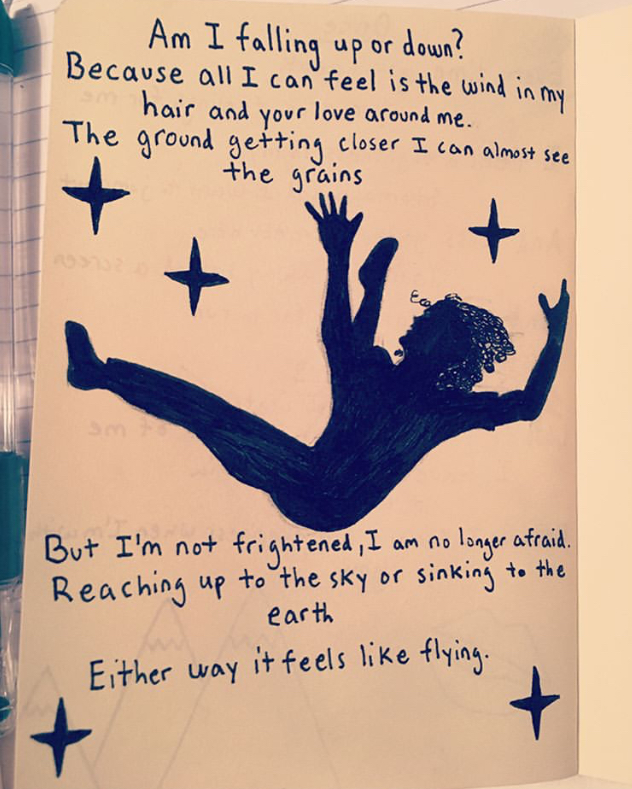 Am I falling up or down?
Because all I can feel is the wind in my
hair and your love around me.
The ground getting closer I can almost see
the grains
But I'm not frightened, I am no longer afraid.
Reaching up to the sky or sinking to the
earth
Either way it feels like flying.